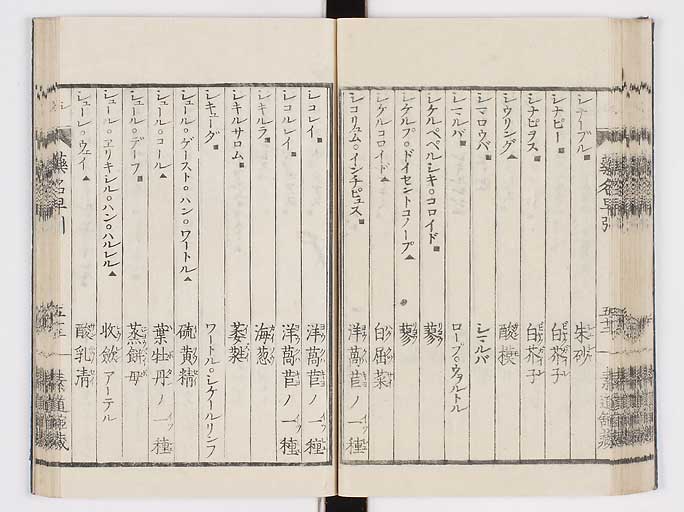 シナーブル■ 朱砂
シナピー■ 白芥子
シナピヲス■ 白芥子
シウリング▲ 酸模
シマロウバ■ シマルバ
シマルバ■ ローブ。ウァルトル
シケルペペルシキ。コロイド■ 蓼
シケルプ。ドイセントコノープ▲ 蓼
シケルコロイド▲ 白屈菜
シコリュム。インチピュス■ 洋萵苣ノ一種
シコレイ■ 洋萵苣ノ一種
シコルレイ■ 洋萵苣ノ一種
シキルラ■ 海葱
シキルサロム■ 萎蕤
シキューダ■ ワートル。シケールリンフ
シュール。ゲースト。ハン。ワートル▲ 硫黄精
シュール。コール▲ 葉牡丹ノ一種
シュール。デーフ■ 蒸餅母
シュール。ヱリキシル。ハン。ハルレル▲ 收斂アーテル
シューレ。ウェイ▲ 酸乳清
藥名早引